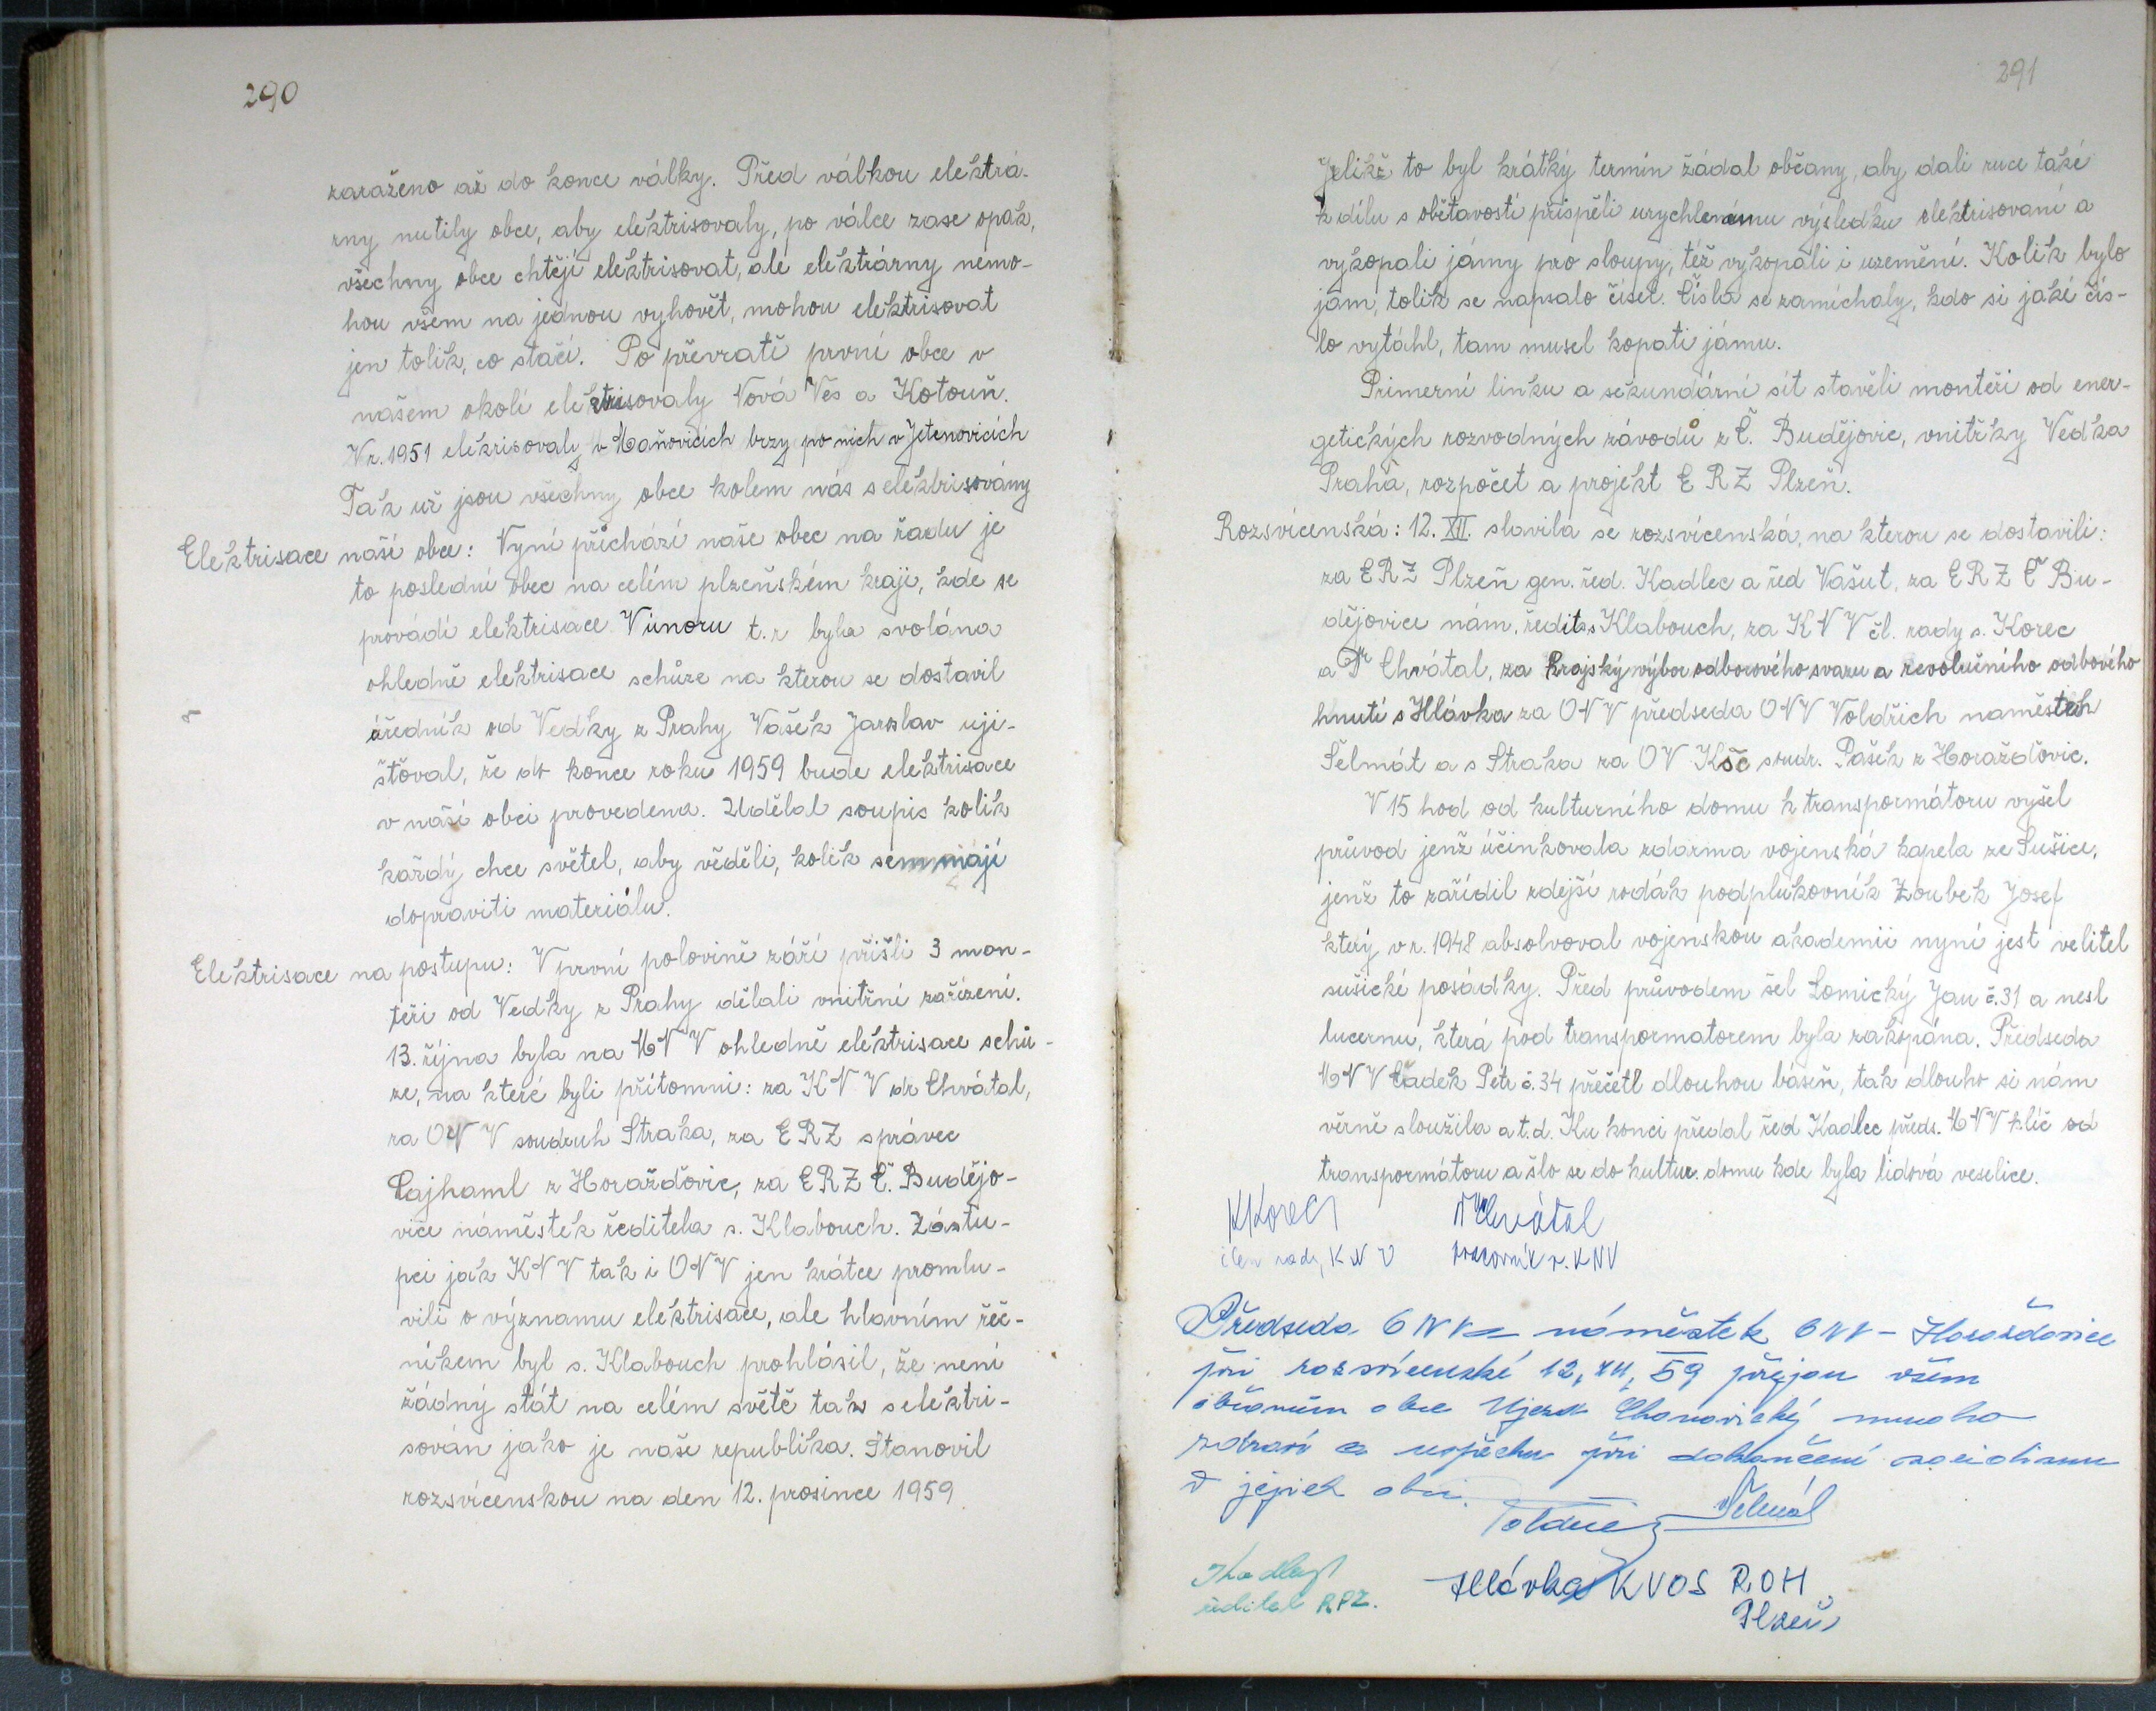 290
zaraženo až do konce války. Před válkou elektrá-
rny nutily obce, aby elektrisovaly, po válce zase opak,
všechny obce chtějí elektrisovat, ale elektrárny nemo-
hou všem na jednou vyhovět, mohou elektrisovat
jen tolik, co stačí. Po převratě první obce v
našem okolí elektrisovaly Nová Ves a Kotouň.
V r. 1951 elekrisovaly v Maňovicích brzy po nich v Jetenovicích
Tak už jsou všechny obce kolem nás selektrisovány
Elektrisace naší obce: Nyní přichází naše obec na řadu je
to poslední obec na celém plzeňském kraji, kde se
provádí elektrisace V únoru t.r byla svolána
ohledně elektrisace schůze na kterou se dostavil
úředník od Vedky z Prahy Vašek Jaroslav uji-
šťoval, že do konce roku 1959 bude elektrisace
v náší obci provedena. Udělal soupis kolik
každý chce světel, aby věděli, kolik sem mají
dopraviti materiálu.
Elektrisace na postupu: V první polovině září přišli 3 mon-
téři od Vedky z Prahy dělali vnitřní zařízení.
13. října byla na MNV ohledně elektrisace schů-
ze, na které byli přítomni: za KNV dr Chvátal,
za ONV soudruh Straka, za ERZ správce
Cajhaml z Horažďovic, za ERZ Č. Budějo-
vice náměstek ředitela s. Klabouch. Zástu-
pci jak KNV tak i ONV jen krátce promlu-
vili o významu elektrisace, ale hlavním řeč-
níkem byl s. Klabouch prohlásil, že není
žádný stát na celém světě tak selektri-
sován jako je naše republika. Stanovil
rozsvícenskou na den 12. prosince 1959
291
Jelikž to byl krátký termín žádal občany, aby dali ruce také
k dílu s obětavostí přispěli urychlenému výsledku elektrisovaní a
vykopali jámy pro sloupy, též vykopali i uzemění. Kolik bylo
jam, tolik se napsalo čísel. Čísla se zamíchaly, kdo si jaké čís-
lo vytáhl, tam musel kopati jámu.
Primerní linku a sekundární sít stavěli montéři od ener-
getických rozvodných závodů z Č. Budějovic, vnitřky Vedka
Praha, rozpočet a projekt ERZ Plzeň.
Rozsvícenská: 12. XII. slavila se rozsvícenská, na kterou se dostavili:
za ERZ Plzeň gen. řed. Kadlec a řed Vašut, za ERZ Č Bu-
dějovice nám. ředit. s Klabouch, za KNV čl. rady s. Korec
a Dr Chvátal, za Krajský výbor odborového svazu a revolučního odbového
hnutí s Hlávka za ONV předseda ONV Voldřich naměstek
Šelmát a s Straka za OV Ksč soudr. Pašek z Horažďovic.
V 15 hod od kulturního domu k transpormátoru vyšel
průvod jenž účinkovala zdarma vojenská kapela ze Sušice,
jenž to zařídil zdejší rodák podplukovník Zoubek Josef
který v r. 1948 absolvoval vojenskou akademii nyní jest velitel
sušické posádky. Před průvodem šel Lomický Jan č. 31 a nesl
lucernu, která pod transpormatorem byla zakopána. Předseda
MNV Čadek Petr č. 34 přečetl dlouhou báseň, tak dlouho si nám
věrně sloužila a t.d. Ku konci předal řed Kadlec předs. MNV klíč od
transpormátoru a šlo se do kultur. domu kde byla lidová veselice.
KKorec Chvátal
člen rady KNV pracovník r. KNV
Předseda ONV a náměstek ONV - Horažďovice
při rozsvícenské 12, XII, 59 přejou všem
občanům obce Újezd Chanovický mnoho
zdraví a úspěchu při dokončení socialismu
v jejich obci.
Voldřich Šelmát
Kadlec
ředitel RPZ.
Hlávka KVOS ROH
Plzeň